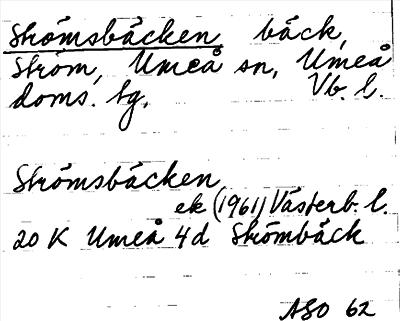 Strömsbäcken, bäck,
Ström, Umeå sn, Umeå
doms. tg, Vb. l.
Strömsbäcken
ek (1961) Västerb. l.
20 K Umeå 4d Strömbäck
ASO 62